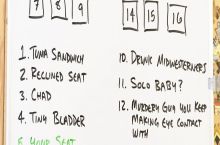 7 8 9
14 15 16
1. TUNA SANDWICH
2. RECLINED SEAT
3. CHAD
4. TINY BLADDER
5 YOUR SEAT
10. DRUNK MIDWESTERNERS
11. SOLO BABY?
12. MURDERY GUY YOU KEEP
MAKING EYE CONTACT
WITH